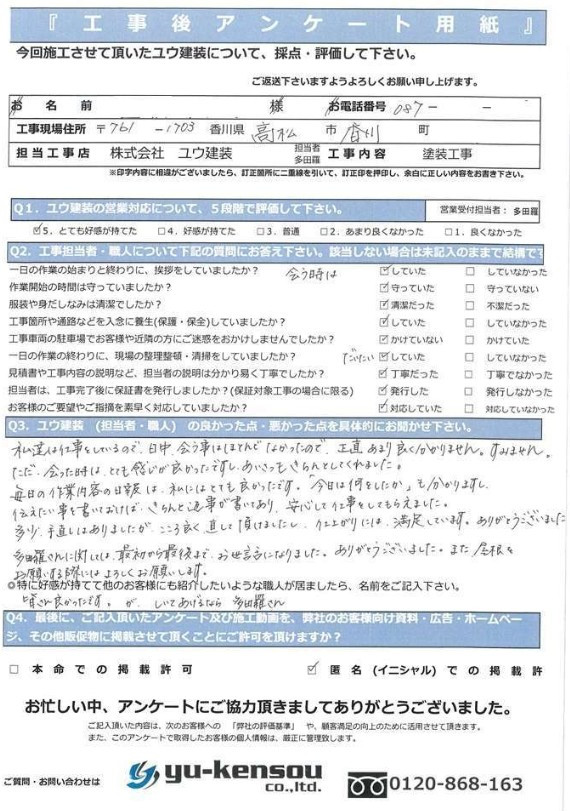 『工事後アンケート用紙』
今回施工させて頂いたユウ建装について、採点・評価して下さい。
ご返送下さいますようよろしくお願い申し上げます。
お名前 様 お電話番号 087- -
工事現場住所 〒761-1703 香川県 高松 市 香川 町
担当工事店 株式会社 ユウ建装 担当者 多田羅 工事内容 塗装工事
※印字内容に相違がございましたら、訂正箇所に二重線を引いて、訂正印を押印し、余白に正しい内容をお書き下さい。
Q1．ユウ建装の営業対応について、5段階で評価して下さい。 営業受付担当者：多田羅
☑5．とても好感が持てた □4．好感が持てた □3．普通 □2．あまり良くなかった □1．良くなかった
Q2．工事担当者・職人について下記の質問にお答え下さい。該当しない場合は未記入のままで結構です
一日の作業の始まりと終わりに、挨拶をしていましたか？ 会う時は ☑していた □していなかった
作業開始の時間は守っていましたか？ ☑守っていた □守っていない
服装や身だしなみは清潔でしたか？ ☑清潔だった □不潔だった
工事箇所や通路などを入念に養生(保護・保全)していましたか？ ☑していた □していなかった
工事車両の駐車場でお客様や近隣の方にご迷惑をおかけしませんでしたか？ ☑かけていない □かけていた
一日の作業の終わりに、現場の整理整頓・清掃をしていましたか？ だいたい ☑していた □していなかった
見積書や工事内容の説明など、担当者の説明は分かり易く丁寧でしたか？ ☑丁寧だった □丁寧でなかった
担当者は、工事完了後に保証書を発行しましたか？(保証対象工事の場合に限る) ☑発行した □発行しなかった
お客様のご要望やご指摘を素早く対応していましたか？ ☑対応していた □対応していなかった
Q3．ユウ建装 (担当者・職人) の良かった点・悪かった点を具体的にお聞かせ下さい。
私達は仕事をしているので、日中、会う事はほとんどなかったので、正直あまり良く分かりません。すみません。
ただ、会った時は、とても感じが良かったですし、あいさつもきちんとしてくれました。
毎日の作業内容の日報は、私にはとても良かったです。「今日は何をしたか」も分かりますし、
伝えたい事を書いておけば、きちんと返事が書いてあり、安心して仕事をしてもらえました。
多少、手直しはありましたが、こころ良く直して頂けましたし、仕上がりには、満足しています。ありがとうございました
多田羅さんに対しては、最初から最後まで、お世話になりました。ありがとうございました。また屋根を
お願いする際にはよろしくお願いします。
◎特に好感が持てて他のお客様にも紹介したいような職人が居ましたら、名前をご記入下さい。
皆さん良かったです。が、しいてあげるなら 多田羅さん
Q4．最後に、ご記入頂いたアンケート及び施工動画を、弊社のお客様向け資料・広告・ホームペー
ジ、その他販促物に掲載させて頂くことにご許可を頂けますか？
□ 本命での掲載許可 ☑ 匿名(イニシャル)での掲載許
お忙しい中、アンケートにご協力頂きましてありがとうございました。
ご記入頂いた内容は、次のお客様への 「弊社の評価基準」 や、顧客満足の向上のために活用させて頂きます。
また、このアンケートで取得したお客様の個人情報は、厳正に管理致します。
ご質問・お問い合わせは yu-kensou co.,ltd. 0120-868-163